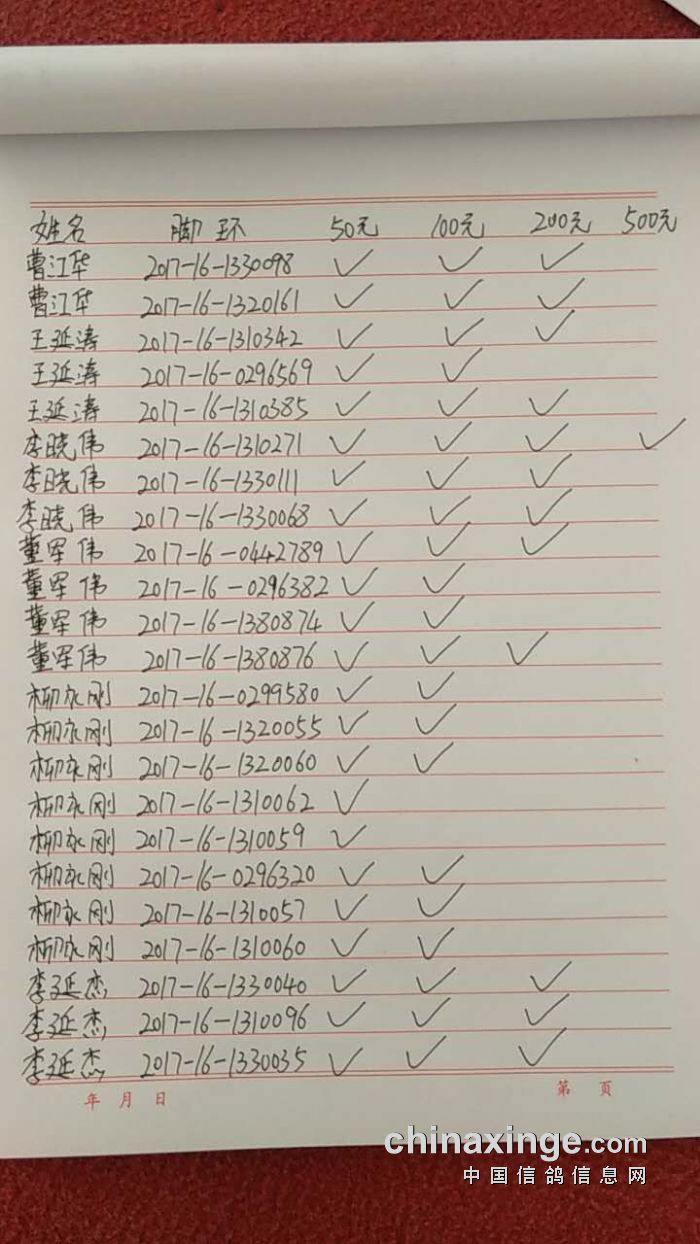 姓名 脚环 50元 100元 200元 500元
曹江华 2017-16-1330098 ✓ ✓ ✓
曹江华 2017-16-1320161 ✓ ✓ ✓
王延涛 2017-16-1310342 ✓ ✓ ✓
王延涛 2017-16-0296569 ✓ ✓
王延涛 2017-16-1310385 ✓ ✓ ✓
李晓伟 2017-16-1310271 ✓ ✓ ✓ ✓
李晓伟 2017-16-1330111 ✓ ✓ ✓
李晓伟 2017-16-1330068 ✓ ✓ ✓
董军伟 2017-16-0442789 ✓ ✓ ✓
董军伟 2017-16-0296382 ✓ ✓
董军伟 2017-16-1380874 ✓ ✓
董军伟 2017-16-1380876 ✓ ✓ ✓
柳永刚 2017-16-0299580 ✓ ✓
柳永刚 2017-16-1320055 ✓ ✓
柳永刚 2017-16-1320060 ✓ ✓
柳永刚 2017-16-1310062 ✓
柳永刚 2017-16-1310059 ✓
柳永刚 2017-16-0296320 ✓ ✓
柳永刚 2017-16-1310057 ✓ ✓
柳永刚 2017-16-1310060 ✓ ✓
李延杰 2017-16-1330040 ✓ ✓ ✓
李延杰 2017-16-1310096 ✓ ✓ ✓
李延杰 2017-16-1330035 ✓ ✓ ✓
年 月 日 第 页
chinaxinge.com
中国信鸽信息网